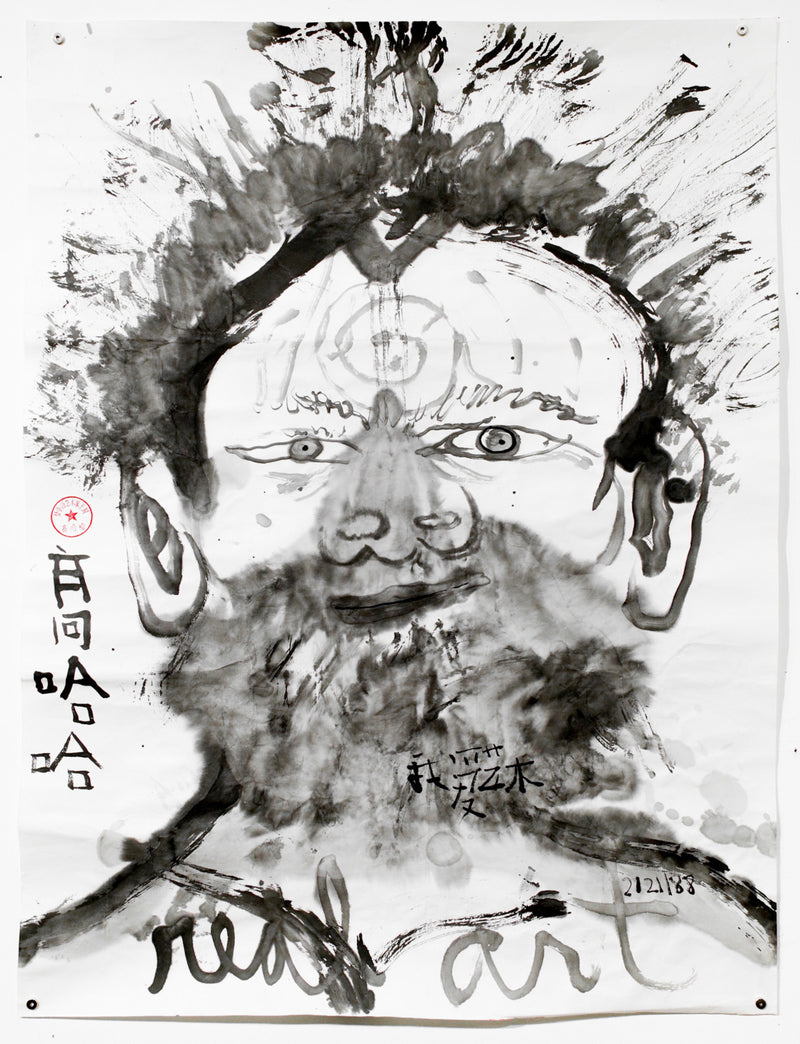 哈哈
我爱艺术
2/21/88
real art